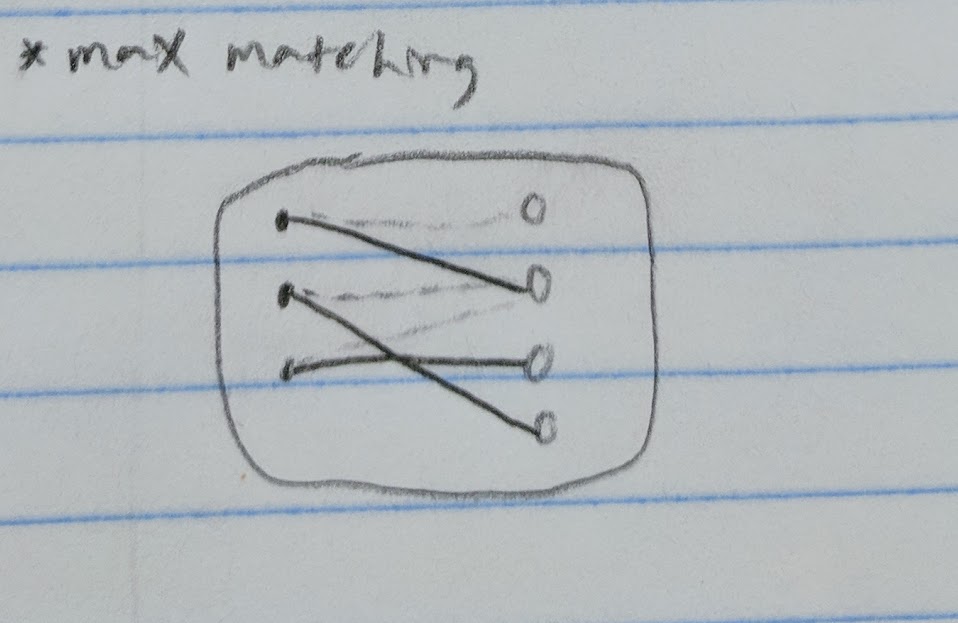 * max matching